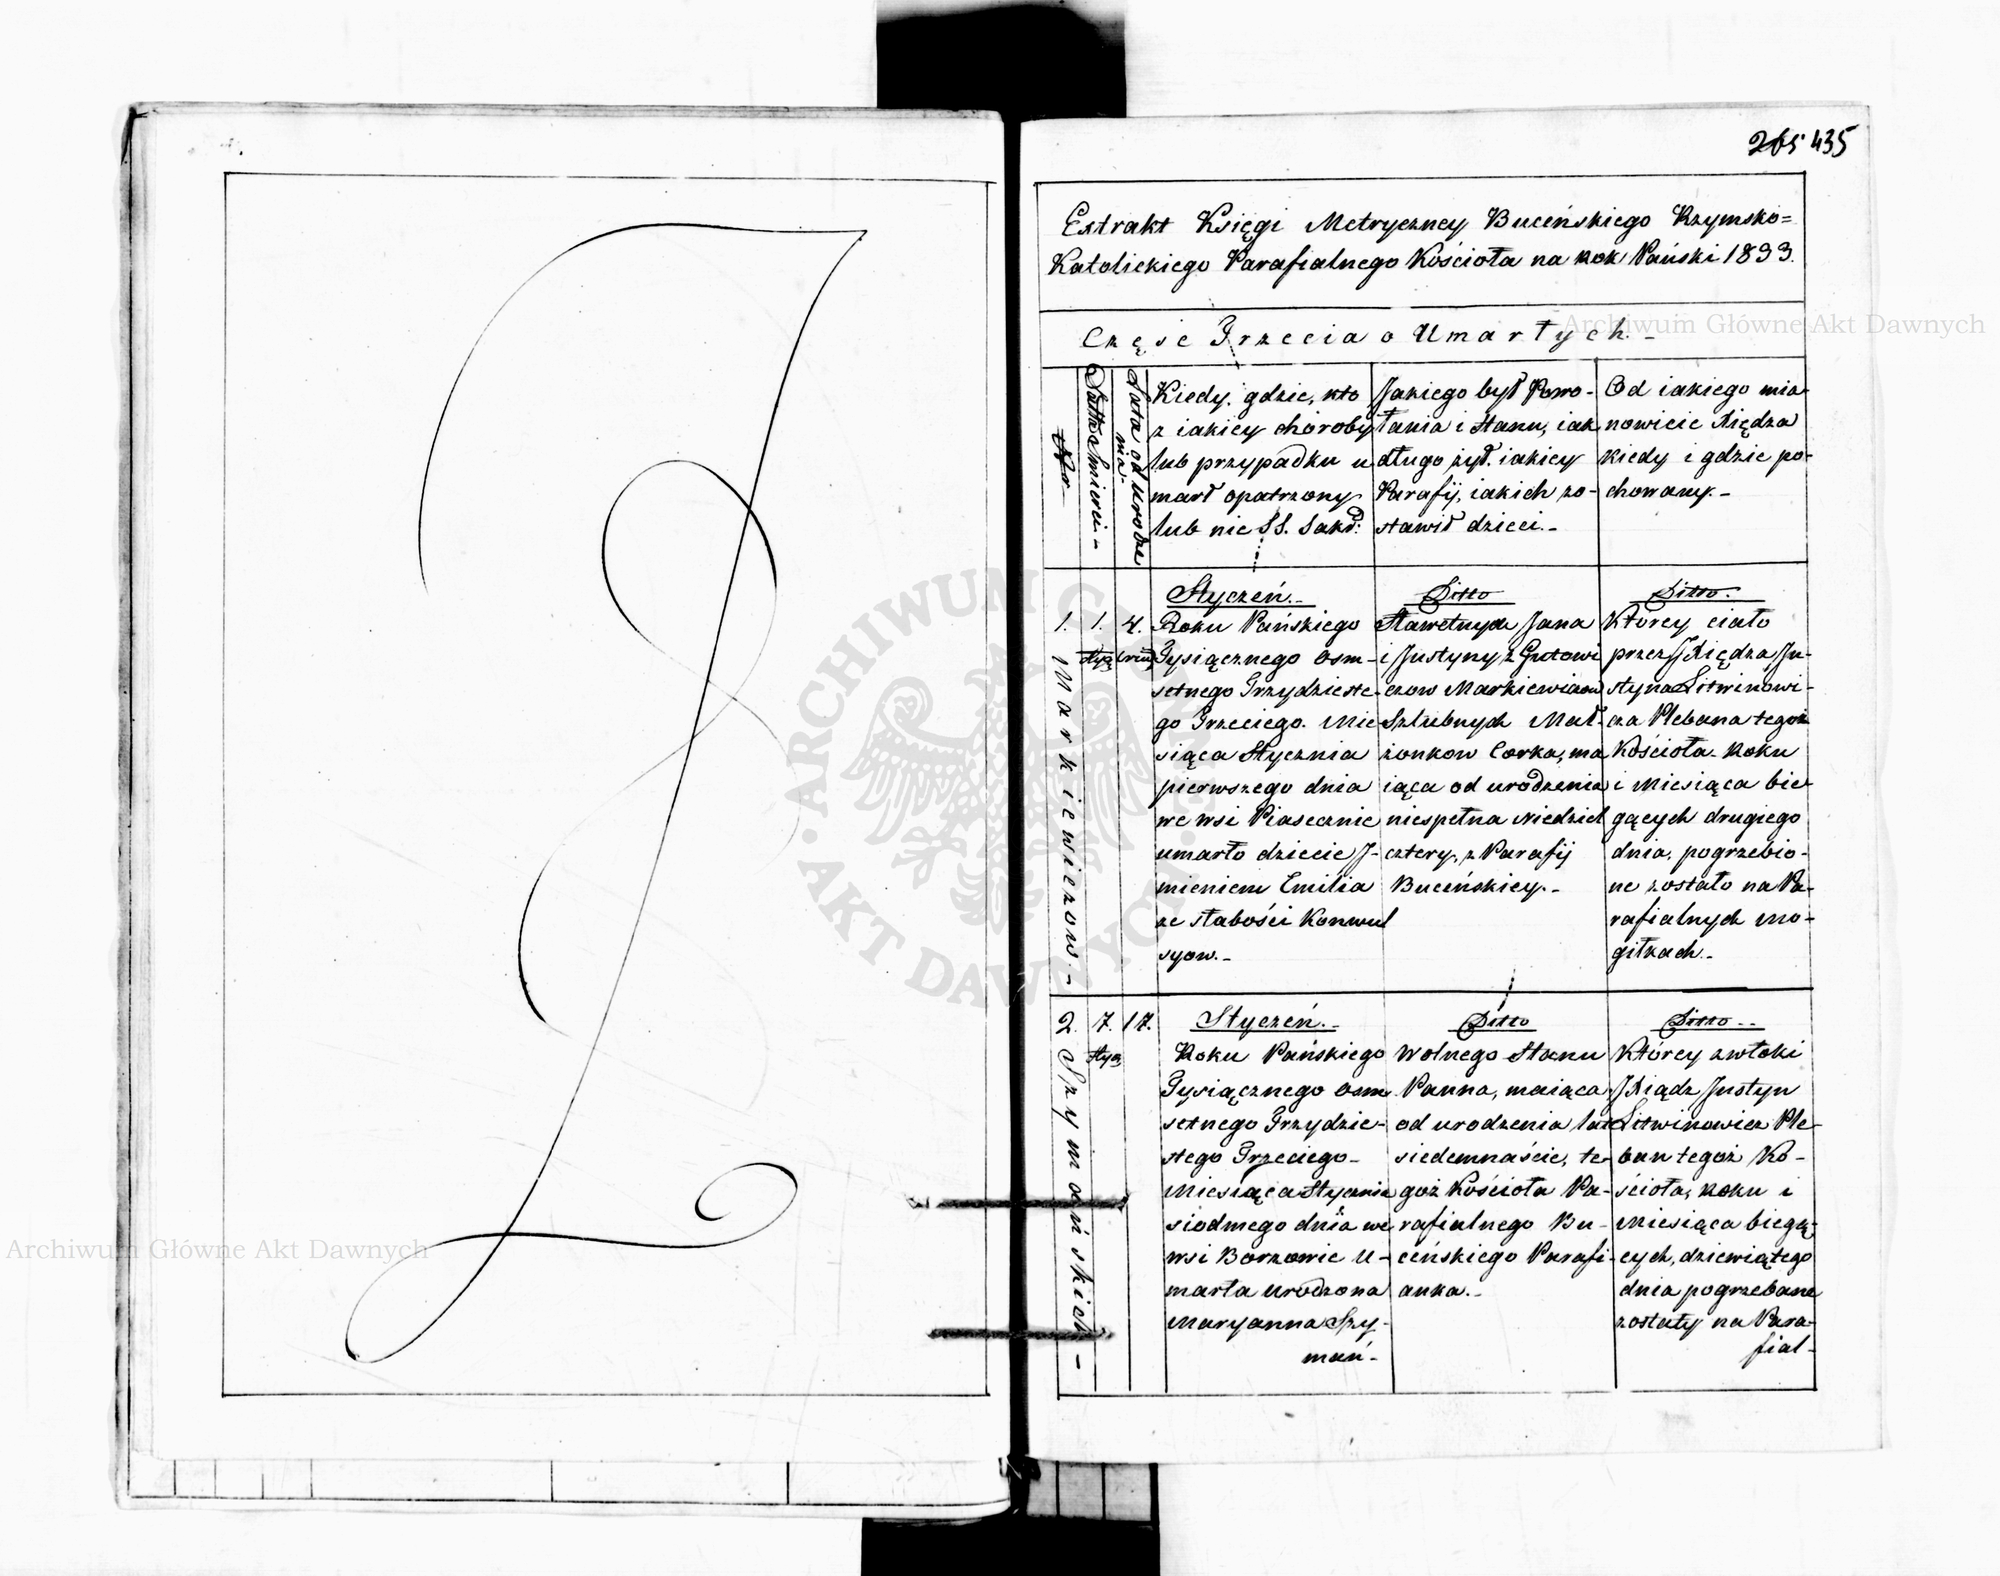 265 435
Extrakt Księgi Metryczney Buceńskiego Rzymsko=
Katolickiego Parafialnego Kościoła na Rok Pański 1833.
Część Trzecia o Umarłych.-
Nr-
Datta Śmierci.-
Lata od urodze
nia-
Kiedy, gdzie, kto
z iakiey choroby
lub przypadku u
marł opatrzony
lub nie SS. Sakr:
Jakiego był Powo-
łania i stanu, iak
długo żył. iakiey
Parafij, iakich zo-
stawił dzieci.-
Od iakiego mia-
nowicie Xiędza
kiedy i gdzie po-
chowany.-
1.
Markiewiczow.-
1.
Stycz
4.
Styczeń.-
Roku Pańskiego
Tysiącznego osm-
setnego Trzydzieste-
go Trzeciego. Mie
siąca Stycznia
pierwszego dnia
we wsi Piasecznie
umarło dziecie J-
mieniem Emilia
ze słabości Konwul
syow.-
Ditto
Sławetnych Jana
i Justyny z Gutowi
czow Markiewiczow
Szlubnych Mał-
żonkow Corka, ma
iąca od urodzenia
niespełna Niedziel
cztery, z Parafij
Buceńskiey.-
Ditto.
Którey ciało
przez J Xiędza Ju-
styna Litwinowi-
cza Plebana tegoż
Kościoła. Roku
i Miesiąca bie-
gących drugiego
dnia, pogrzebio-
ne zostało na Pa-
rafialnych mo-
giłkach.-
2.
Szymańskich-
7.
Stycz
17.
Styczeń.-
Roku Pańskiego
Tysiącznego osm
setnego Trzydzie-
stego Trzeciego-
Miesiąca Stycznia
siodmego dnia we
wsi Borzowie u-
marła urodzona
Maryanna Szy-
mań-
Ditto
Wolnego Stanu
Panna, maiąca
od urodzenia lat
siedemnaście, te-
goż Kościoła Pa-
rafialnego Bu-
ceńskiego Parafi-
anka.-
Ditto.-
Którey zwłoki
J Xiądz Justyn
Litwinowicz Ple-
ban tegoż Ko-
ścioła, Roku i
Miesiąca biegą-
cych, dziewiątego
dnia pogrzebane
zostały na Para-
fial-
Archiwum Główne Akt Dawnych
Archiwum Główne Akt Dawnych
ARCHIWUM GŁÓWNE · AKT DAWNYCH